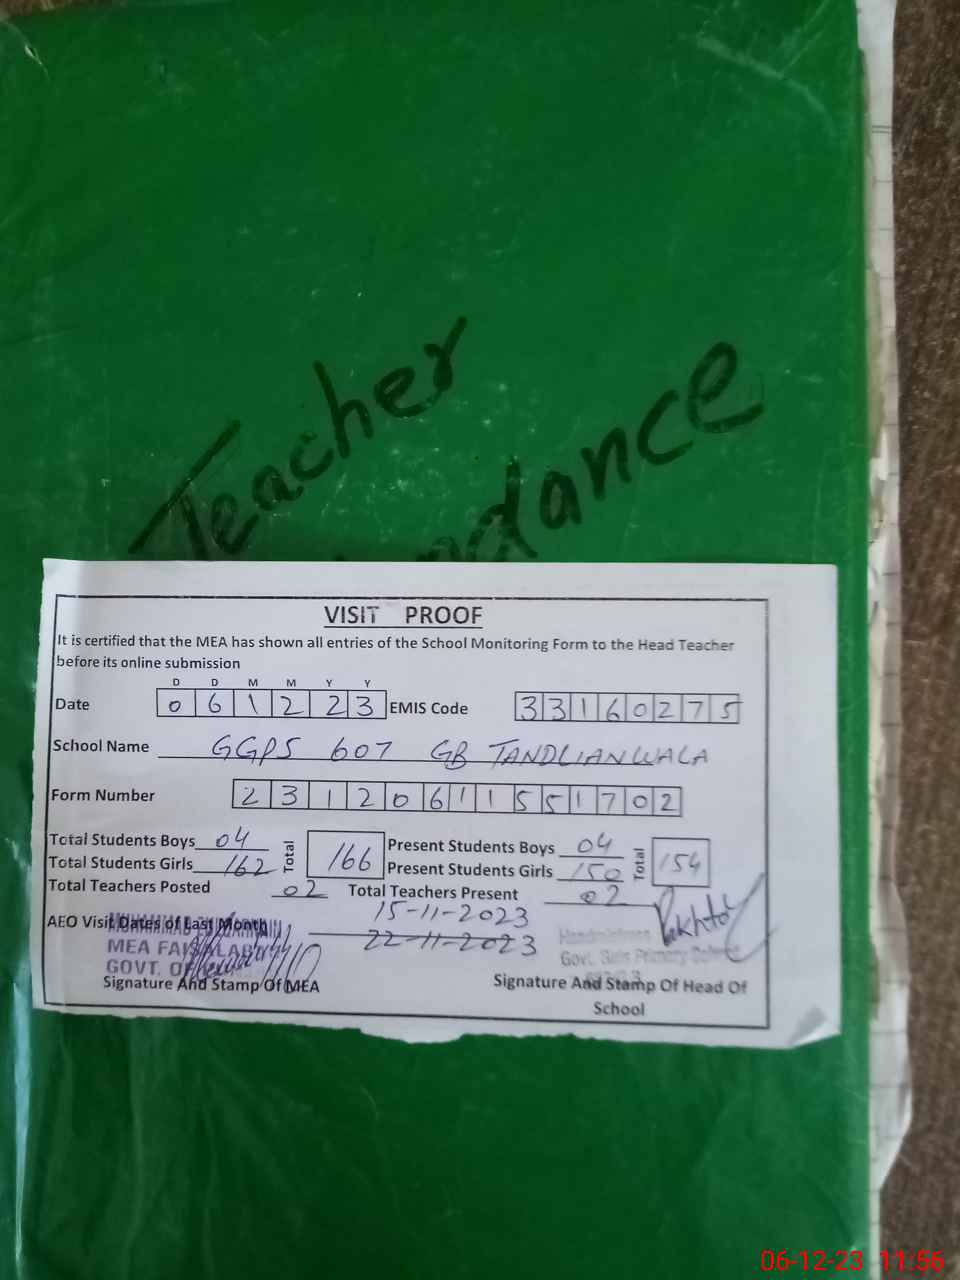 Teacher
dance
VISIT PROOF
It is certified that the MEA has shown all entries of the School Monitoring Form to the Head Teacher
before its online submission
D D M M Y Y
Date 0 6 1 2 2 3 EMIS Code 3 3 1 6 0 2 7 5
School Name GGPS 607 GB TANDLIANWALA
Form Number 2 3 1 2 0 6 1 1 5 5 1 7 0 2
Total Students Boys 04 Total 166 Present Students Boys 04 Total 154
Total Students Girls 162 Present Students Girls 150
Total Teachers Posted 02 Total Teachers Present 02
AEO Visit Dates of Last Month 15-11-2023
22-11-2023
MEA FAISALABAD
GOVT. OF
Govt. Girls Primary School
Signature And Stamp Of MEA Signature And Stamp Of Head Of
School
06-12-23 11:56